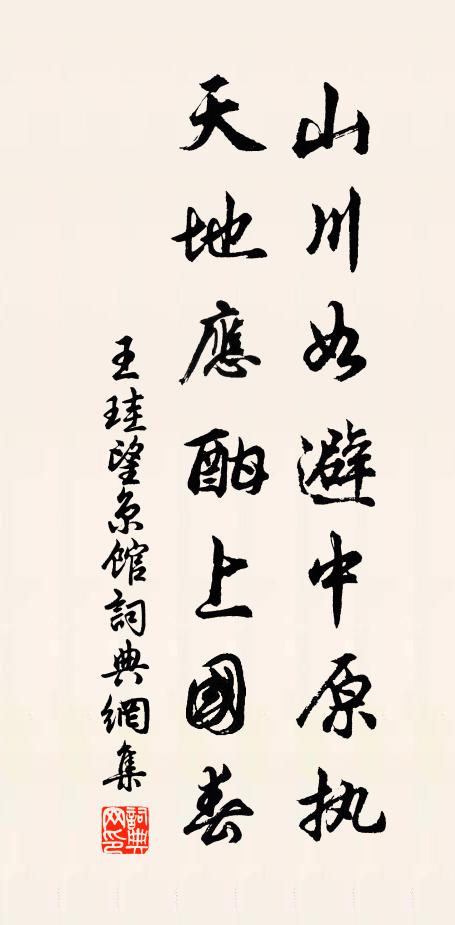 山川如避中原执
天地應酣上國春
王珪望京館詞典網集
詞典網印